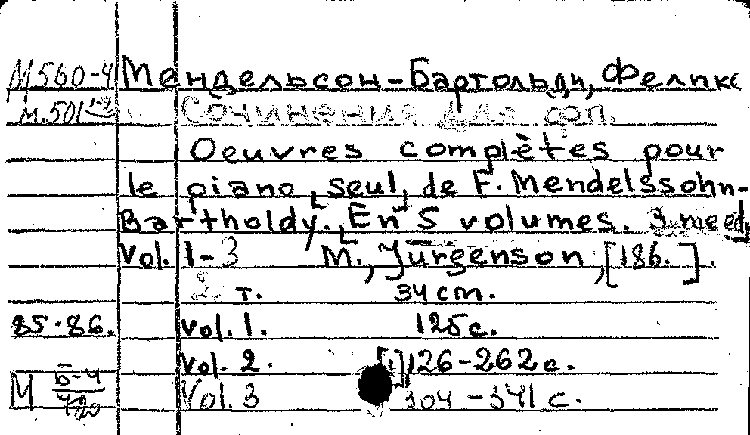 М560-4 Мендельсон-Бартольди, Феликс
М.501 Сочинения для фп.
Oeuvres complètes pour
le piano [seul] de F. Mendelssohn-
Bartholdy. [En 5 volumes.
Vol. 1-3 М., Jurgenson, [186. ].
т. 34 cm.
85-86. Vol. 1. 125 с.
Vol. 2. [1] 126-262 с.
М Vol. 3 304-341 с.